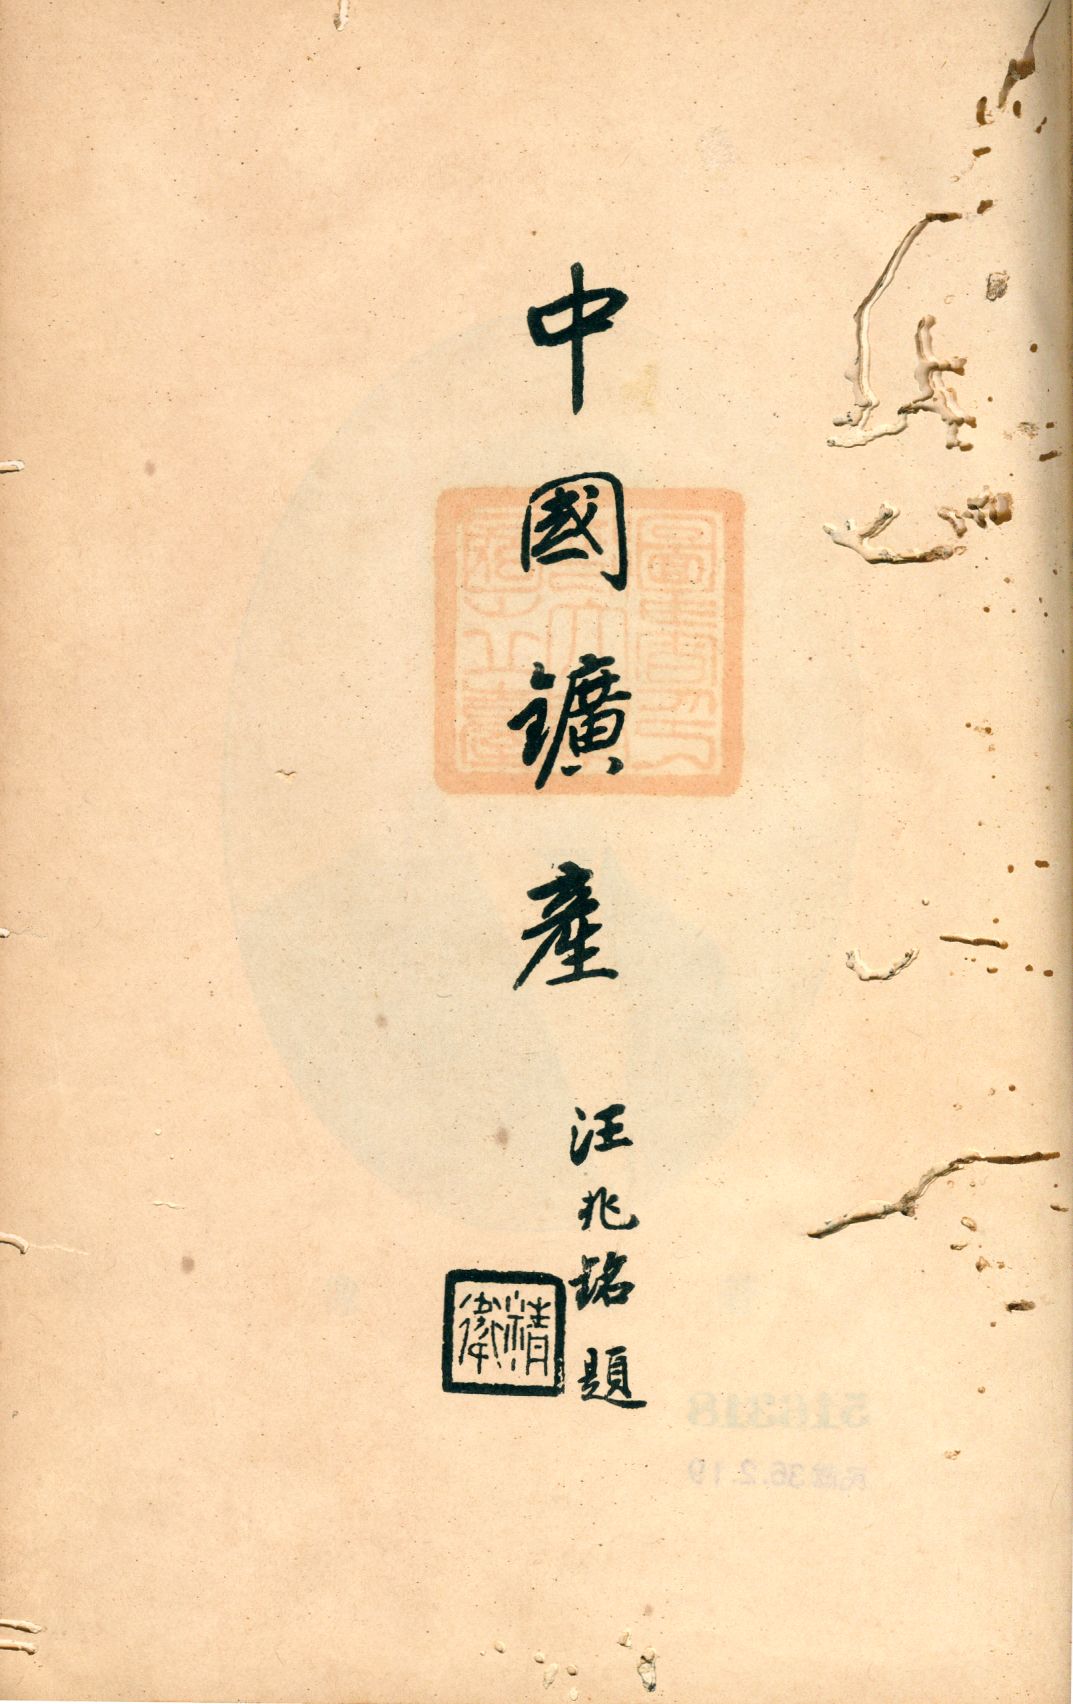 中國鑛產
汪兆銘題
精衛
516318
36.2.19